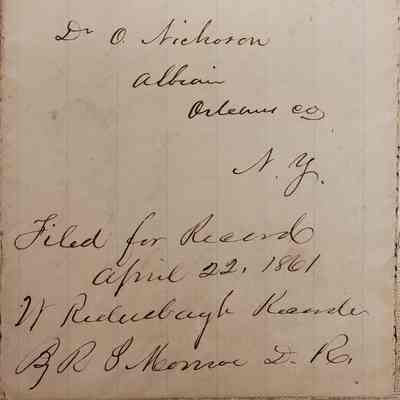 Dr O. Nickoson
Albion
Orleans co
N. Y.
Filed for Record
April 22, 1861
W Recorder
By R S Monroe D. R.